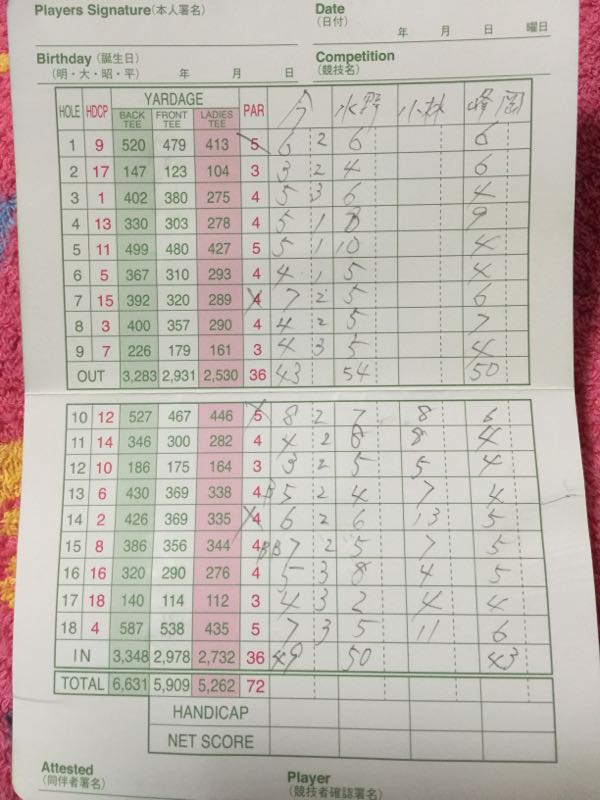 Players Signature(本人署名)
Date
(日付)
年 月 日 曜日
Birthday (誕生日)
(明・大・昭・平) 年 月 日
Competition
(競技名)
HOLE HDCP YARDAGE PAR 今 水野 小林 峰岡
BACK TEE FRONT TEE LADIES TEE
1 9 520 479 413 5 6 2 6 6
2 17 147 123 104 3 3 2 4 6
3 1 402 380 275 4 5 3 6 4
4 13 330 303 278 4 5 1 8 9
5 11 499 480 427 5 5 1 10 4
6 5 367 310 293 4 4 1 5 4
7 15 392 320 289 4 7 2 5 6
8 3 400 357 290 4 4 2 5 7
9 7 226 179 161 3 4 3 5 4
OUT 3,283 2,931 2,530 36 43 54 50
10 12 527 467 446 5 8 2 7 8 6
11 14 346 300 282 4 4 2 8 8 4
12 10 186 175 164 3 3 2 5 5 4
13 6 430 369 338 4 B 5 2 4 7 4
14 2 426 369 335 4 6 2 6 13 5
15 8 386 356 344 4 BB 7 2 5 7 5
16 16 320 290 276 4 5 3 8 4 5
17 18 140 114 112 3 4 3 2 4 4
18 4 587 538 435 5 7 3 5 11 6
IN 3,348 2,978 2,732 36 49 50 43
TOTAL 6,631 5,909 5,262 72
HANDICAP
NET SCORE
Attested
(同伴者署名)
Player
(競技者確認署名)